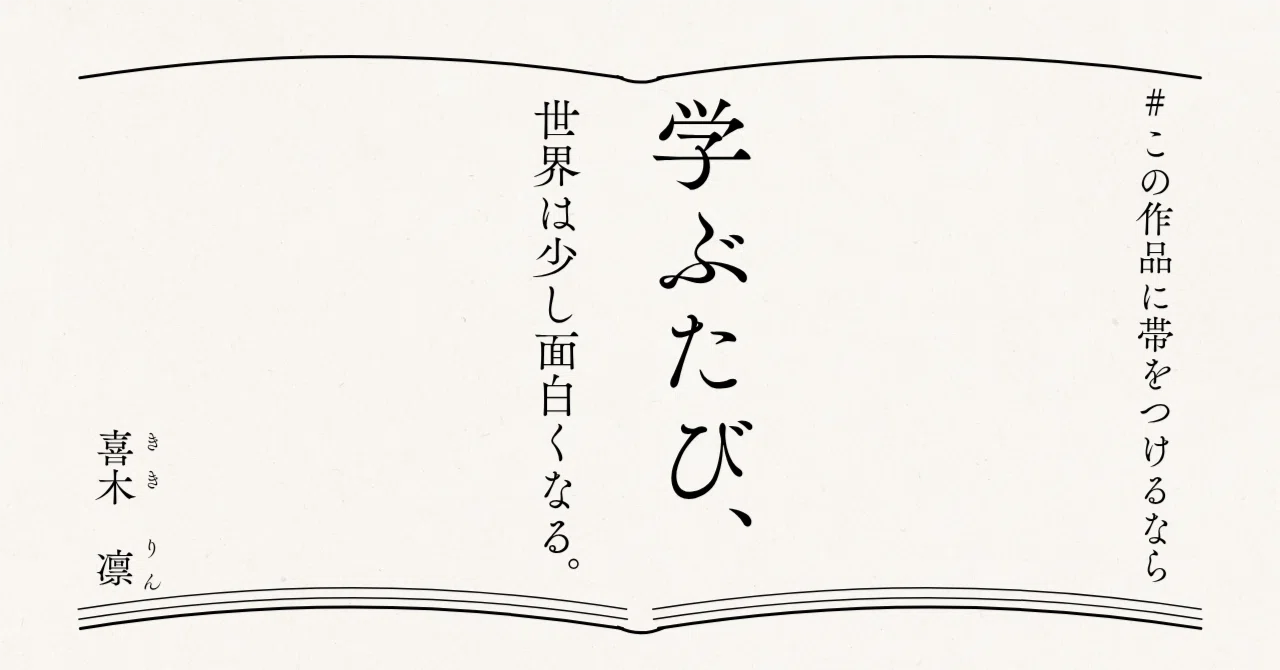 #この作品に帯をつけるなら
学ぶたび、
世界は少し面白くなる。
きき りん
喜木 凛